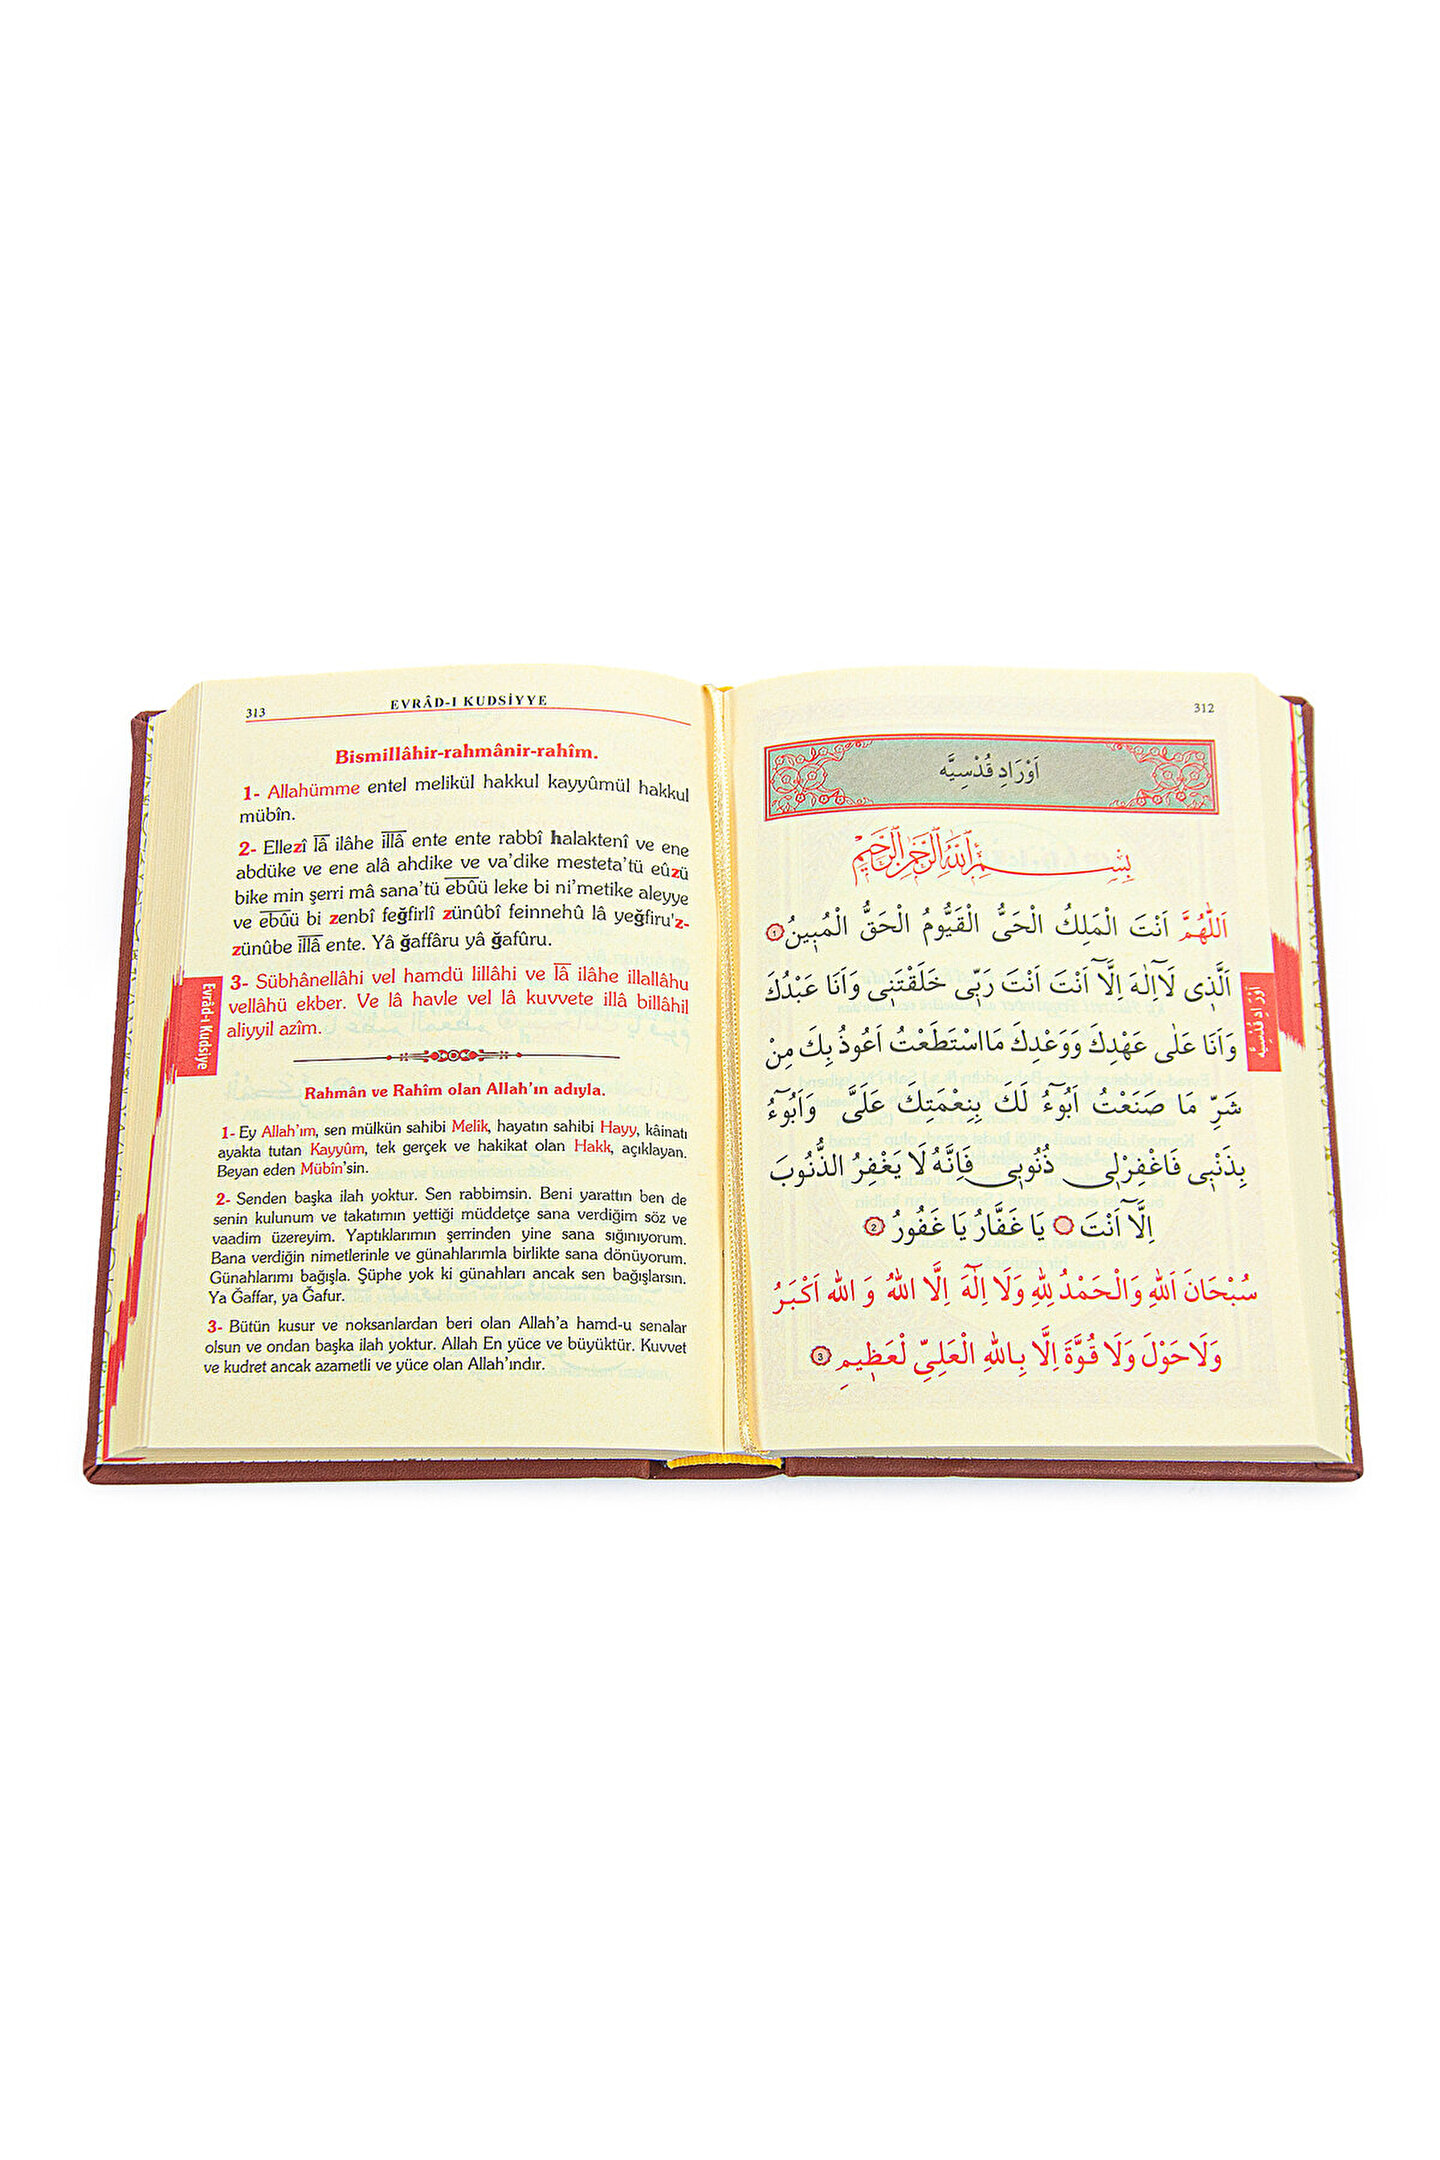 312
اَوْرَادِ قُدْسِيَّه
بِسْمِ اللّٰهِ الرَّحْمٰنِ الرَّحِيْمِ
اَللّٰهُمَّ اَنْتَ الْمَلِكُ الْحَىُّ الْقَيُّومُ الْحَقُّ الْمُبٖينُ ١
اَلَّذٖى لَٓا اِلٰهَ اِلَّٓا اَنْتَ اَنْتَ رَبّٖى خَلَقْتَنٖى وَاَنَا عَبْدُكَ
وَاَنَا عَلٰى عَهْدِكَ وَوَعْدِكَ مَااسْتَطَعْتُ اَعُوذُ بِكَ مِنْ
شَرِّ مَا صَنَعْتُ اَبُوٓءُ لَكَ بِنِعْمَتِكَ عَلَىَّ وَاَبُوٓءُ
بِذَنْبٖى فَاغْفِرْلٖى ذُنُوبٖى فَاِنَّهُ لَا يَغْفِرُ الذُّنُوبَ
اِلَّٓا اَنْتَ يَا غَفَّارُ يَا غَفُورُ 2
سُبْحَانَ اَللّٰهِ وَالْحَمْدُ لِلّٰهِ وَلَا اِلٰٓهَ اِلَّا اللّٰهُ وَ اللّٰه اَكْبَرُ
وَلَاحَوْلَ وَلَا قُوَّةَ اِلَّا بِاللّٰهِ الْعَلِىِّ لْعَظٖيمِ 3
اَوْرَادِ قُدْسِيَّه
313
EVRÂD-I KUDSİYYE
Bismillâhir-rahmânir-rahîm.
1- Allahümme entel melikül hakkul kayyûmül hakkul
mübîn.
2- Ellezî lâ ilâhe illâ ente ente rabbî halaktenî ve ene
abdüke ve ene alâ ahdike ve va'dike mesteta'tü eûzü
bike min şerri mâ sana'tü ebûü leke bi ni'metike aleyye
ve ebûü bi zenbî feğfirlî zünûbî feinnehû lâ yeğfiru'z-
zünûbe illâ ente. Yâ ğaffâru yâ ğafûru.
3- Sübhânellâhi vel hamdü lillâhi ve lâ ilâhe illallâhu
vellâhü ekber. Ve lâ havle vel lâ kuvvete illâ billâhil
aliyyil azîm.
Evrâd-ı Kudsiye
Rahmân ve Rahîm olan Allah'ın adıyla.
1- Ey Allah'ım, sen mülkün sahibi Melik, hayatın sahibi Hayy, kâinatı
ayakta tutan Kayyûm, tek gerçek ve hakikat olan Hakk, açıklayan.
Beyan eden Mübîn'sin.
2- Senden başka ilah yoktur. Sen rabbimsin. Beni yarattın ben de
senin kulunum ve takatımın yettiği müddetçe sana verdiğim söz ve
vaadim üzereyim. Yaptıklarımın şerrinden yine sana sığınıyorum.
Bana verdiğin nimetlerinle ve günahlarımla birlikte sana dönüyorum.
Günahlarımı bağışla. Şüphe yok ki günahları ancak sen bağışlarsın.
Ya Ğaffar, ya Ğafur.
3- Bütün kusur ve noksanlardan beri olan Allah'a hamd-u senalar
olsun ve ondan başka ilah yoktur. Allah En yüce ve büyüktür. Kuvvet
ve kudret ancak azametli ve yüce olan Allah'ındır.